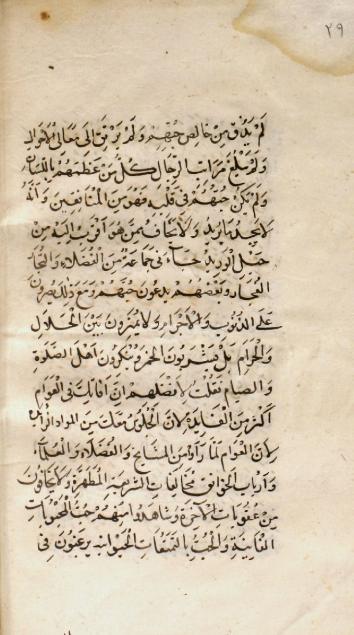 ٢٩
لم يذق من خالص حبهم ولم يرق الى معالي الاحوال
ولم يبلغ مراتب الرجال كل من عظمهم باللسان
ولم يكن حبهم في قلبه فهو من المنافقين وانه
لا يجد ما يريد ولا يخاف ممن هو اقرب اليه من
حبل الوريد جاء في جماعة من الفضلاء والتجار
الفجار وبعضهم يدعون حبهم ومع ذلك يصرون
على الذنوب والاجرام ولا يميزون بين الحلال
والحرام بل يشربون الخمر وينكرون اهل الصلوة
والصيام فقلت لافضلهم ان في العوام
اكثر من لان من المواد
لان العوام لما رأوا من المشايخ والفضلاء والعلماء
وارباب الخوانق مخالفات الشريعة المطهرة ولا يخافون
من عقوبات الآخرة وشاهدوا منهم حب المحبوبات
الفانية والحب بالتمتعات الحيوانية يرغبون في